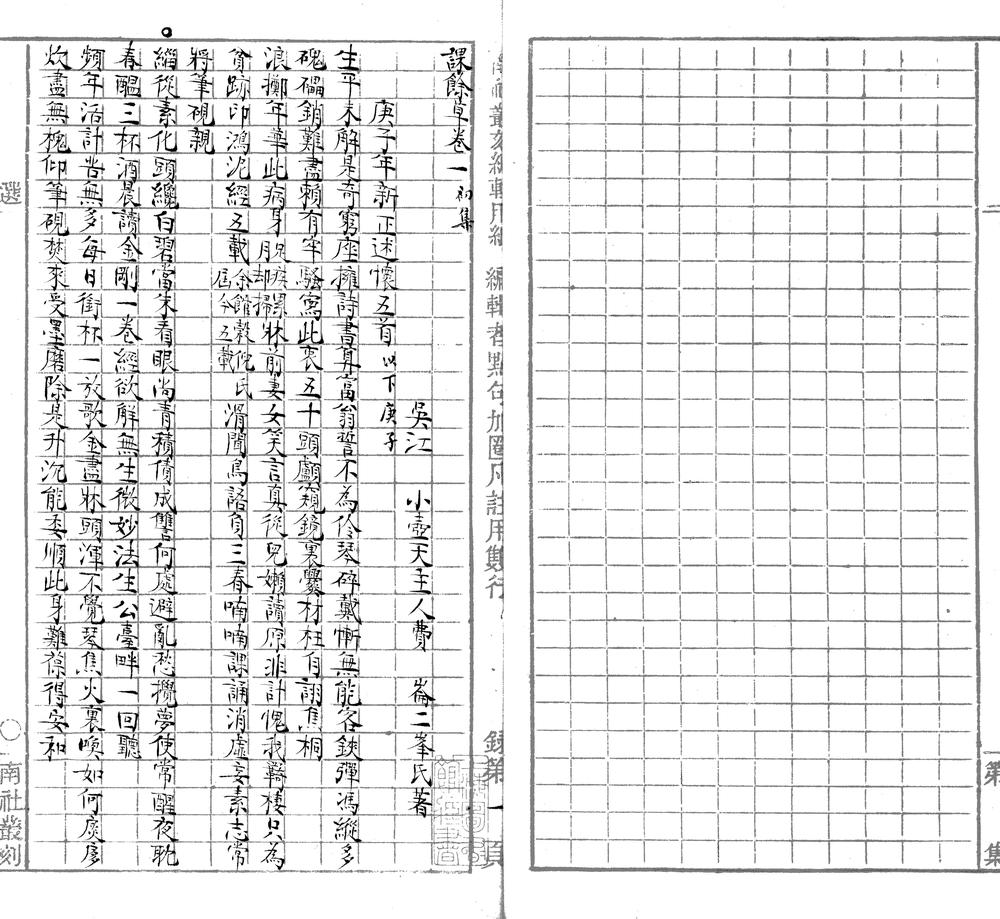 第　集
南社叢刻編輯用紙　編輯者點句加圈凡註用雙行　錄第一頁
課餘草卷一 初集
吳江　小壺天主人費　崙二峯氏著
庚子年新正述懷五首 以下庚子
生平未解是奇窮座擁詩書算富翁誓不為伶琴碎戴慚無能客鋏彈馮縱多
磈磊銷難盡賴有牢騷寫此衷五十頭顱窺鏡裏爨材枉自詡焦桐
浪擲年華此病身足疾累月却掃牀前妻女笑言真從兒嬾讀原非計愧我羇棲只為
貧跡印鴻泥經五載余館穀倪氏屆今五載滑聞鳥語負三春喃喃課誦消虛妄素志常
將筆硯親
緇從素化頭纔白碧當朱看眼尚青積債成讐何處避亂愁攪夢使常醒夜耽
春醞三杯酒晨讀金剛一卷經欲解無生微妙法生公臺畔一回聽
頻年活計苦無多每日銜杯一放歌金盡牀頭渾不覺琴焦火裏喚如何扊扅
炊盡無槐仰筆硯焚來受墨磨除是升沉能委順此身難葆得安和
選　〇南社叢刻